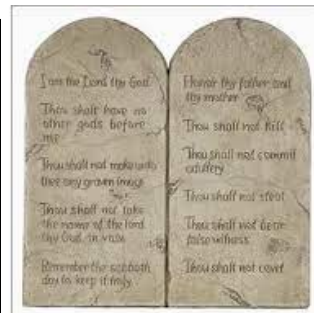 I am the Lord thy God
Thou shalt have no
other gods before
me
Thou shall not make unto
thee any graven image
Thou shall not take
the name of the lord
thy God in vain
Remember the sabbath
day to keep it holy
Honor thy father and
thy mother
Thou shall not kill
Thou shall not commit
adultery
Thou shall not steal
Thou shall not bear
false witness
Thou shall not covet